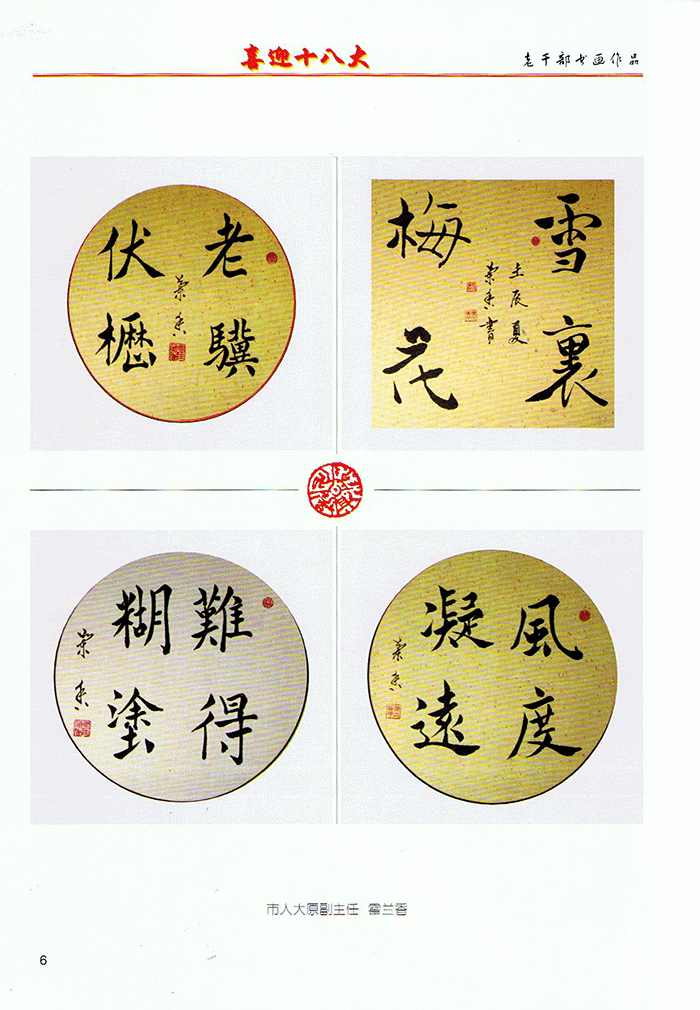 喜迎十八大
老干部书画作品
老驥
伏櫪
雪裏
梅花
壬辰夏
難得
糊塗
風度
凝遠
市人大原副主任 霍兰香
6